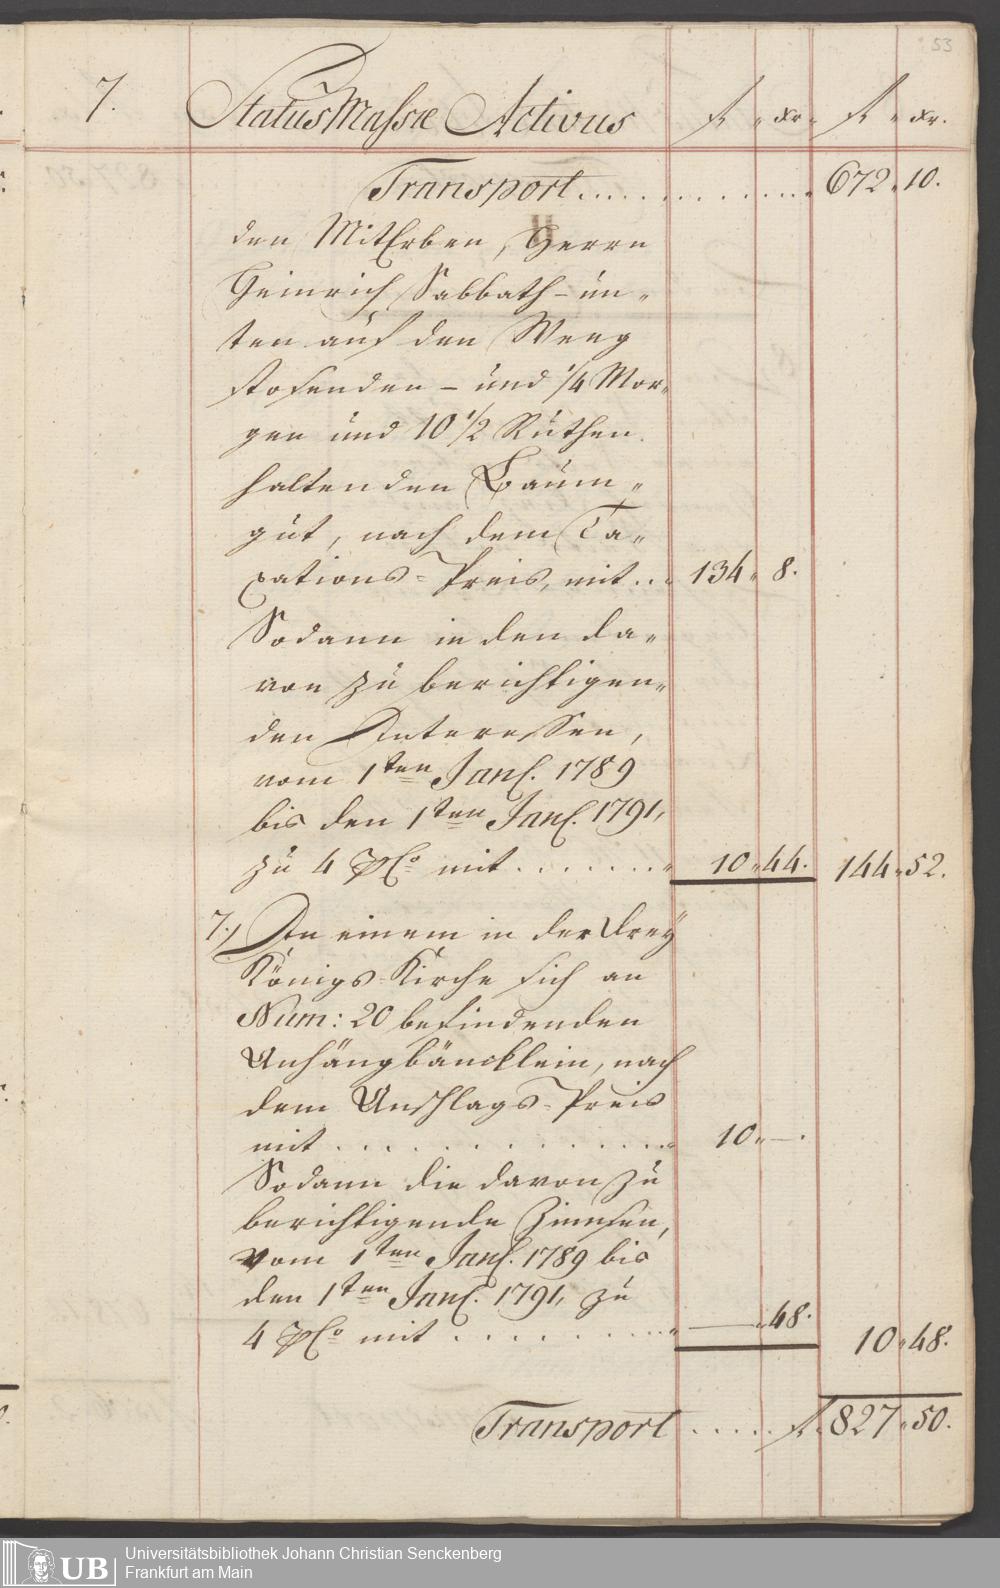 53
7. Status Massæ Activus f. xr. f. xr.
Transport . . . . . . . . . . . 672. 10.
den MitErben, Herrn
Heinrich Sabbath - un„
ten auf den Weeg
stosenden - und 1/4 Mor„
gen und 10 1/2 Ruthen
haltenden Baum„
gut, nach dem Ta„
xations-Preis, mit . . . 134. 8.
Sodann in den da„
von zu berichtigen„
den Interessen,
vom 1ten Jan. 1789
bis den 1ten Jan. 1791,
zu 4 pCo mit . . . . . . . 10. 44. 144. 52.
7.) An einem in der Drey
Königs-Kirche sich an
Num: 20 befindenden
Anhängbäncklein, nach
dem Anschlags-Preis
mit . . . . . . . . . . . . . 10. —.
Sodann die davon zu
berichtigende Zinnsen,
vom 1ten Jan. 1789 bis
den 1ten Jan. 1791, zu
4 pCo mit . . . . . . . . . — 48. 10. 48.
Transport . . . . . f. 827. 50.
UB
Universitätsbibliothek Johann Christian Senckenberg
Frankfurt am Main